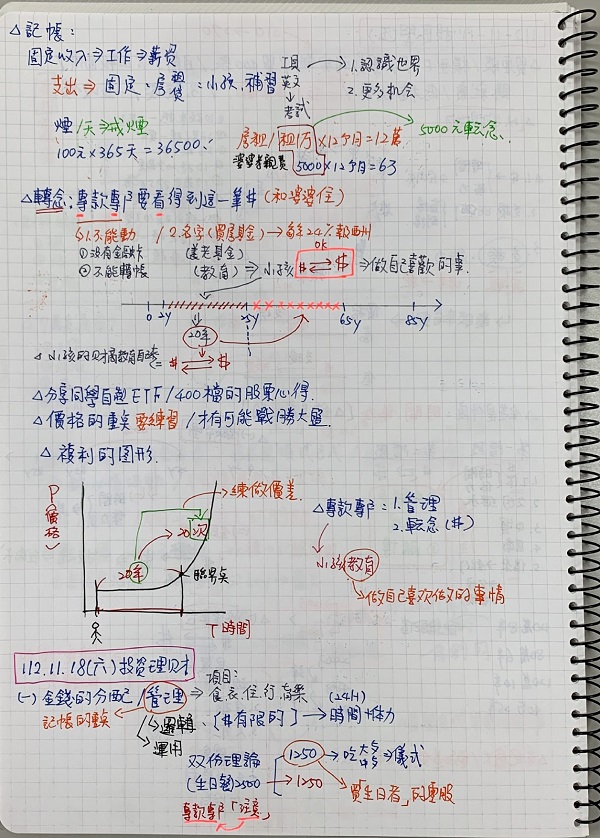 △記帳:
固定收入⇒工作⇒薪資
支出⇒固定、房租貸、小孩、補習 英文
工具
→考試
1.認識世界
2.更多机会
煙/天⇒戒煙
100元×365天=36500
房租/租1万×12个月=12萬
5000×12个月=6万
5000元転念
△轉念:專款專戶要看得到這一筆# (和婆婆住)
1.不能動 / 2.名字(買房基金)→每年24%報酬
①沒有金融卡 (養老基金) OK
②不能轉帳 (教育)⇒小孩 #⇄$ ⇒做自己喜歡的事.
0 2y 25y 65y 85y
20年
△小孩的財商教育 #⇄$
△分享同學自製ETF/400檔的股票心得.
△價格的重點 要練習/才有可能戰勝大盤.
△複利的圖形.
P(價格)
練做價差.
20次
20年
臨界點
T時間
△專款專戶=1.管理
2.転念(#)
小孩教育
做自己喜欢做的事情
112.11.18(六)投資理財
(一)金錢的分配/管理⇒食衣住行育樂 (24H)
項目:
記帳的重點
邏輯、(#有限的)→時間+体力
運用
双份理論
(生日禮)2500
1250→吃大餐⇒儀式
→1250
買「生日者」的零股
專款專戶「注意」